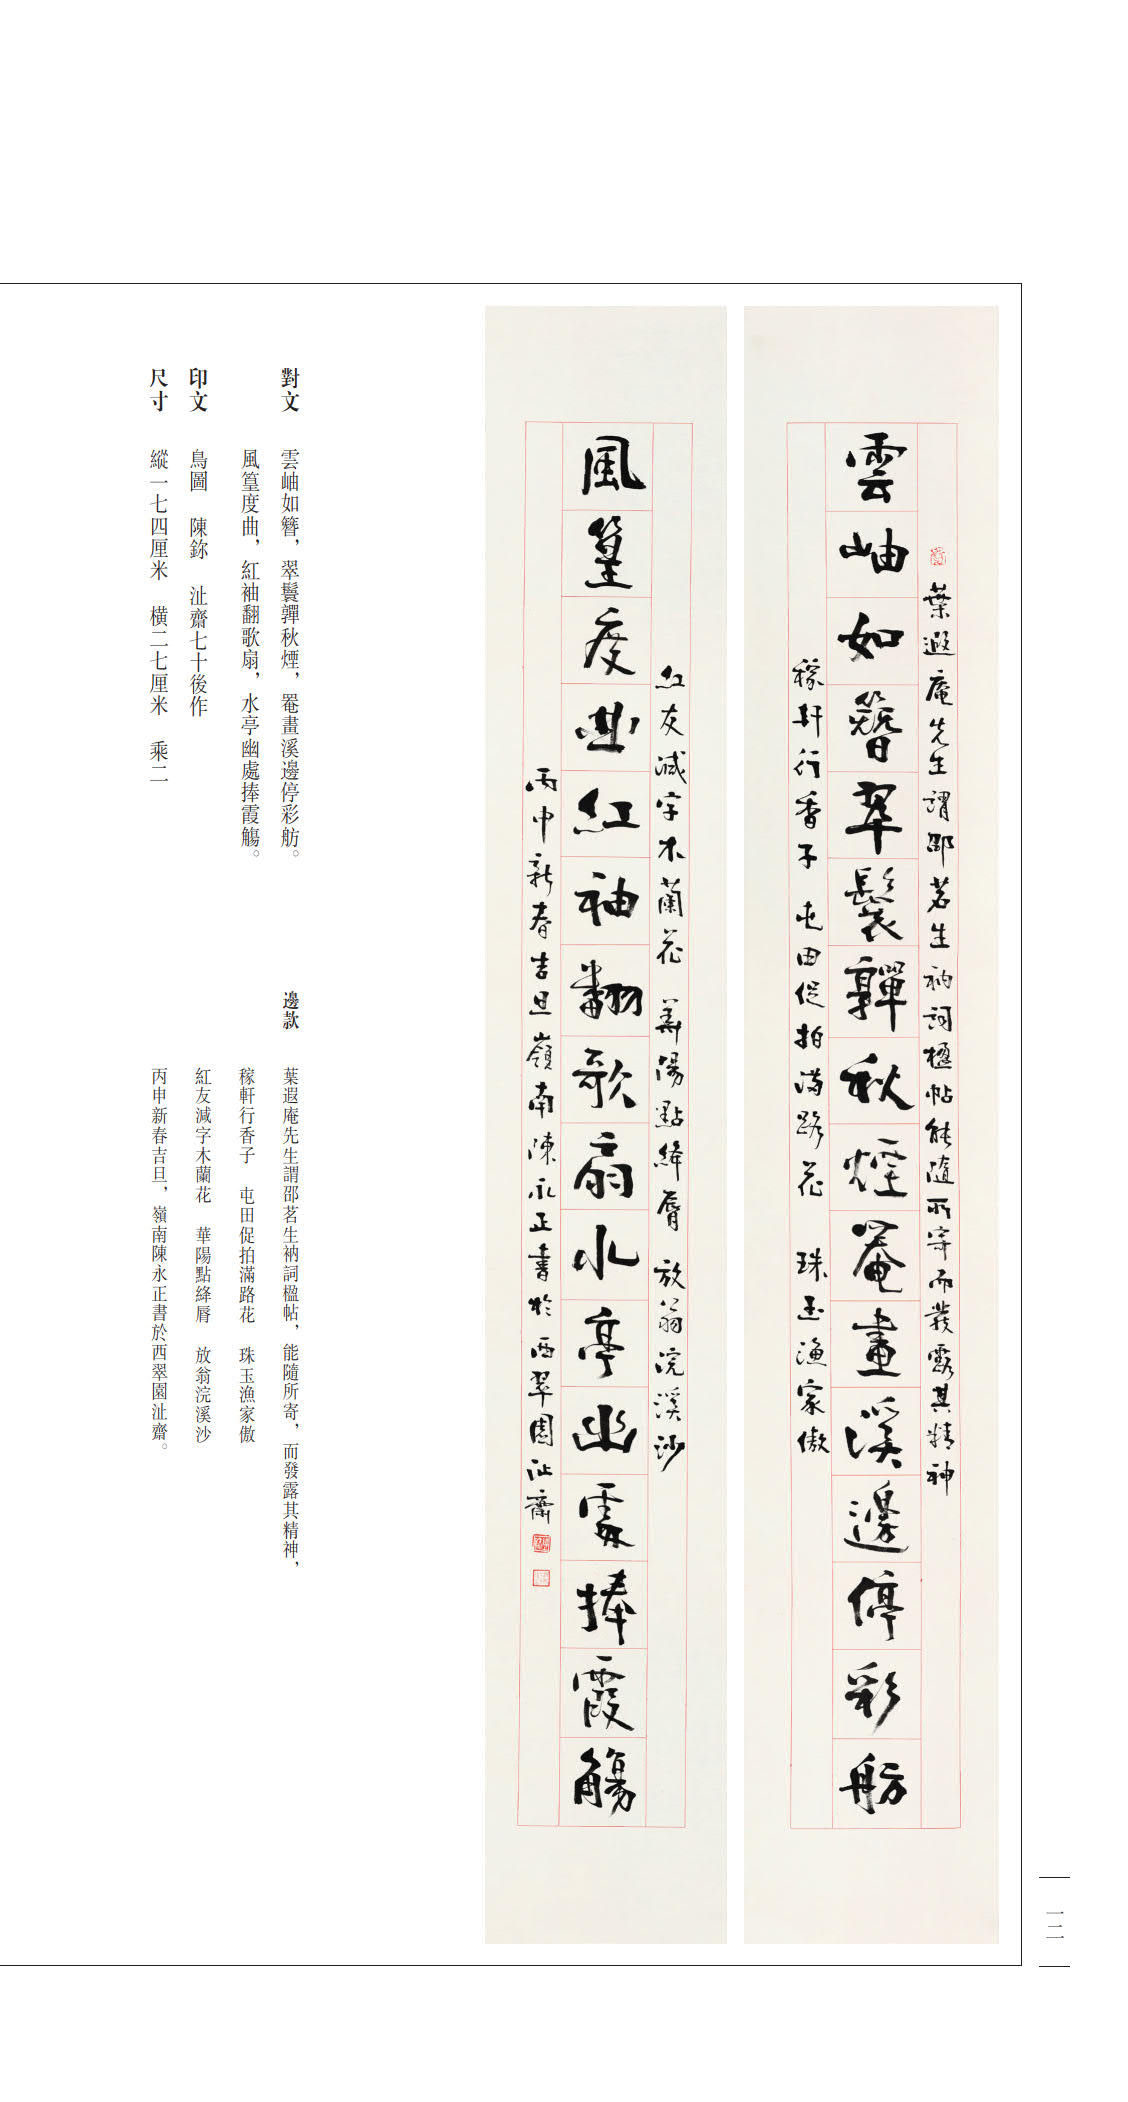 葉遐庵先生謂邵茗生衲詞楹帖能隨所寄而發露其精神
雲岫如簪翠鬟嚲秋煙罨畫溪邊停彩舫
稼軒行香子 屯田促拍滿路花 珠玉漁家傲
紅友減字木蘭花 華陽點絳脣 放翁浣溪沙
風篁度曲紅袖翻歌扇水亭幽處捧霞觴
丙申新春吉旦嶺南陳永正書於西翠園沚齋
對文 雲岫如簪，翠鬟嚲秋煙，罨畫溪邊停彩舫。
風篁度曲，紅袖翻歌扇，水亭幽處捧霞觴。
印文 鳥圖 陳鉨 沚齋七十後作
尺寸 縱一七四厘米 橫二七厘米 乘二
邊款 葉遐庵先生謂邵茗生衲詞楹帖，能隨所寄，而發露其精神，
稼軒行香子 屯田促拍滿路花 珠玉漁家傲
紅友減字木蘭花 華陽點絳脣 放翁浣溪沙
丙申新春吉旦，嶺南陳永正書於西翠園沚齋。
一二